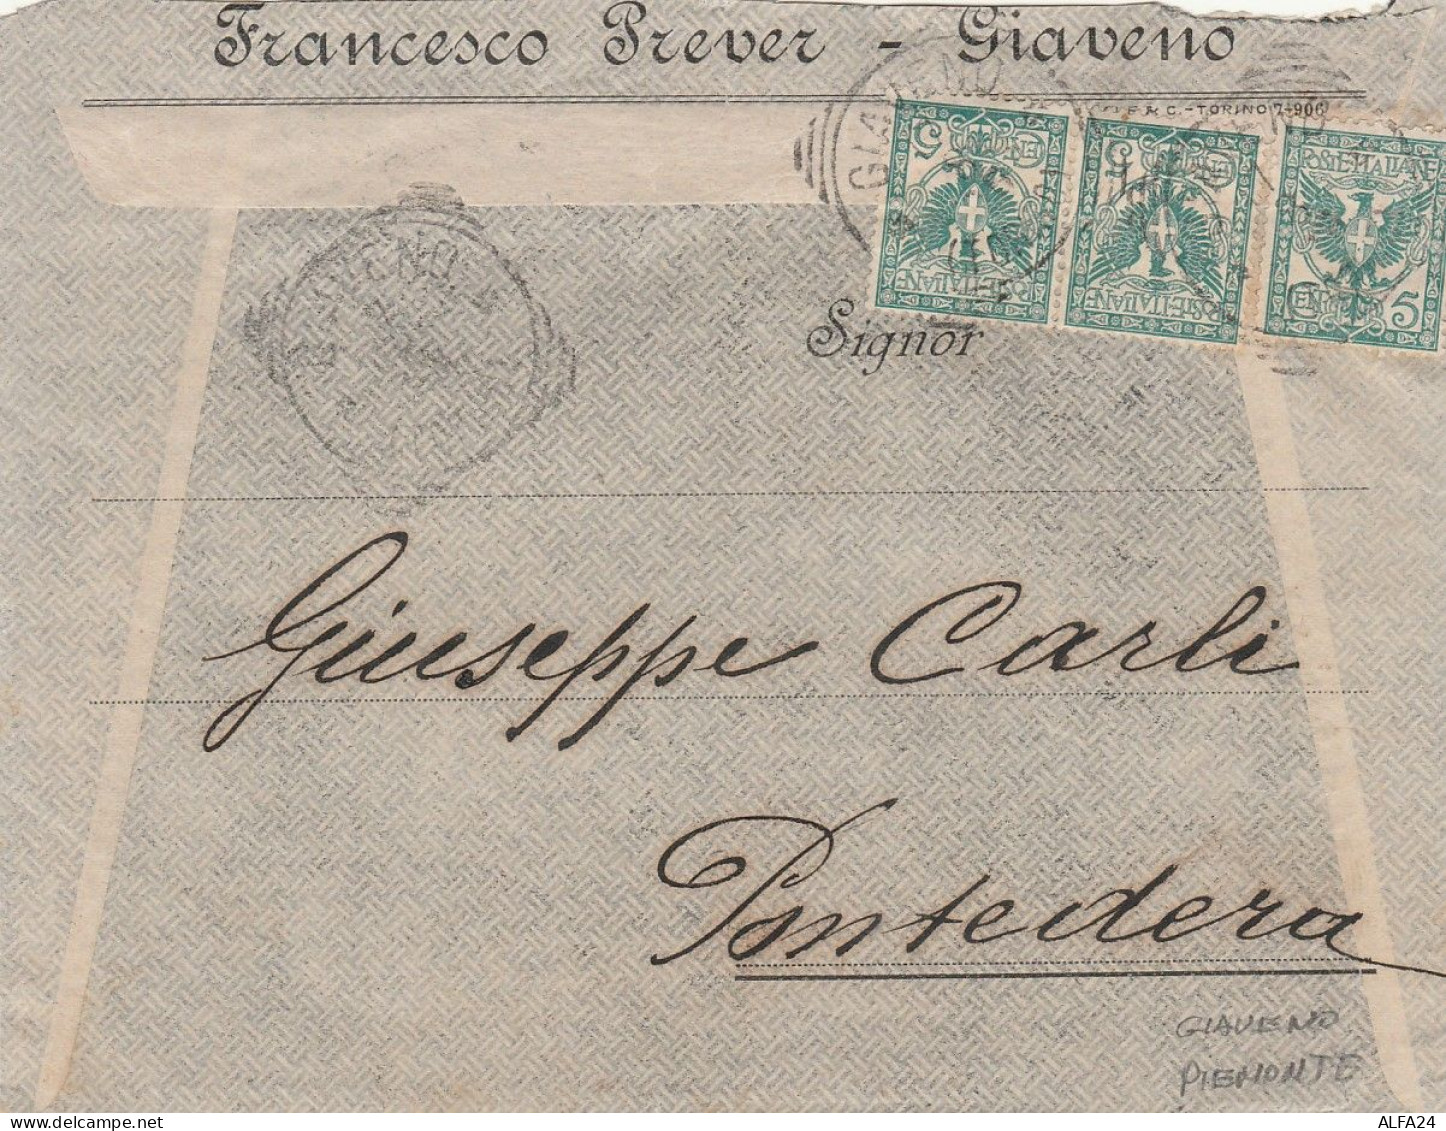 Francesco Prever - Giaveno
& C. - TORINO 7-906
GIAVENO
TORINO
5
5
POSTE ITALIANE
CENT 5
POSTE·ITALIANE
POSTE·ITALIANE
Signor
Giuseppe Carli
Pontedera
GIAVENO
PIEMONTE
ALFA24